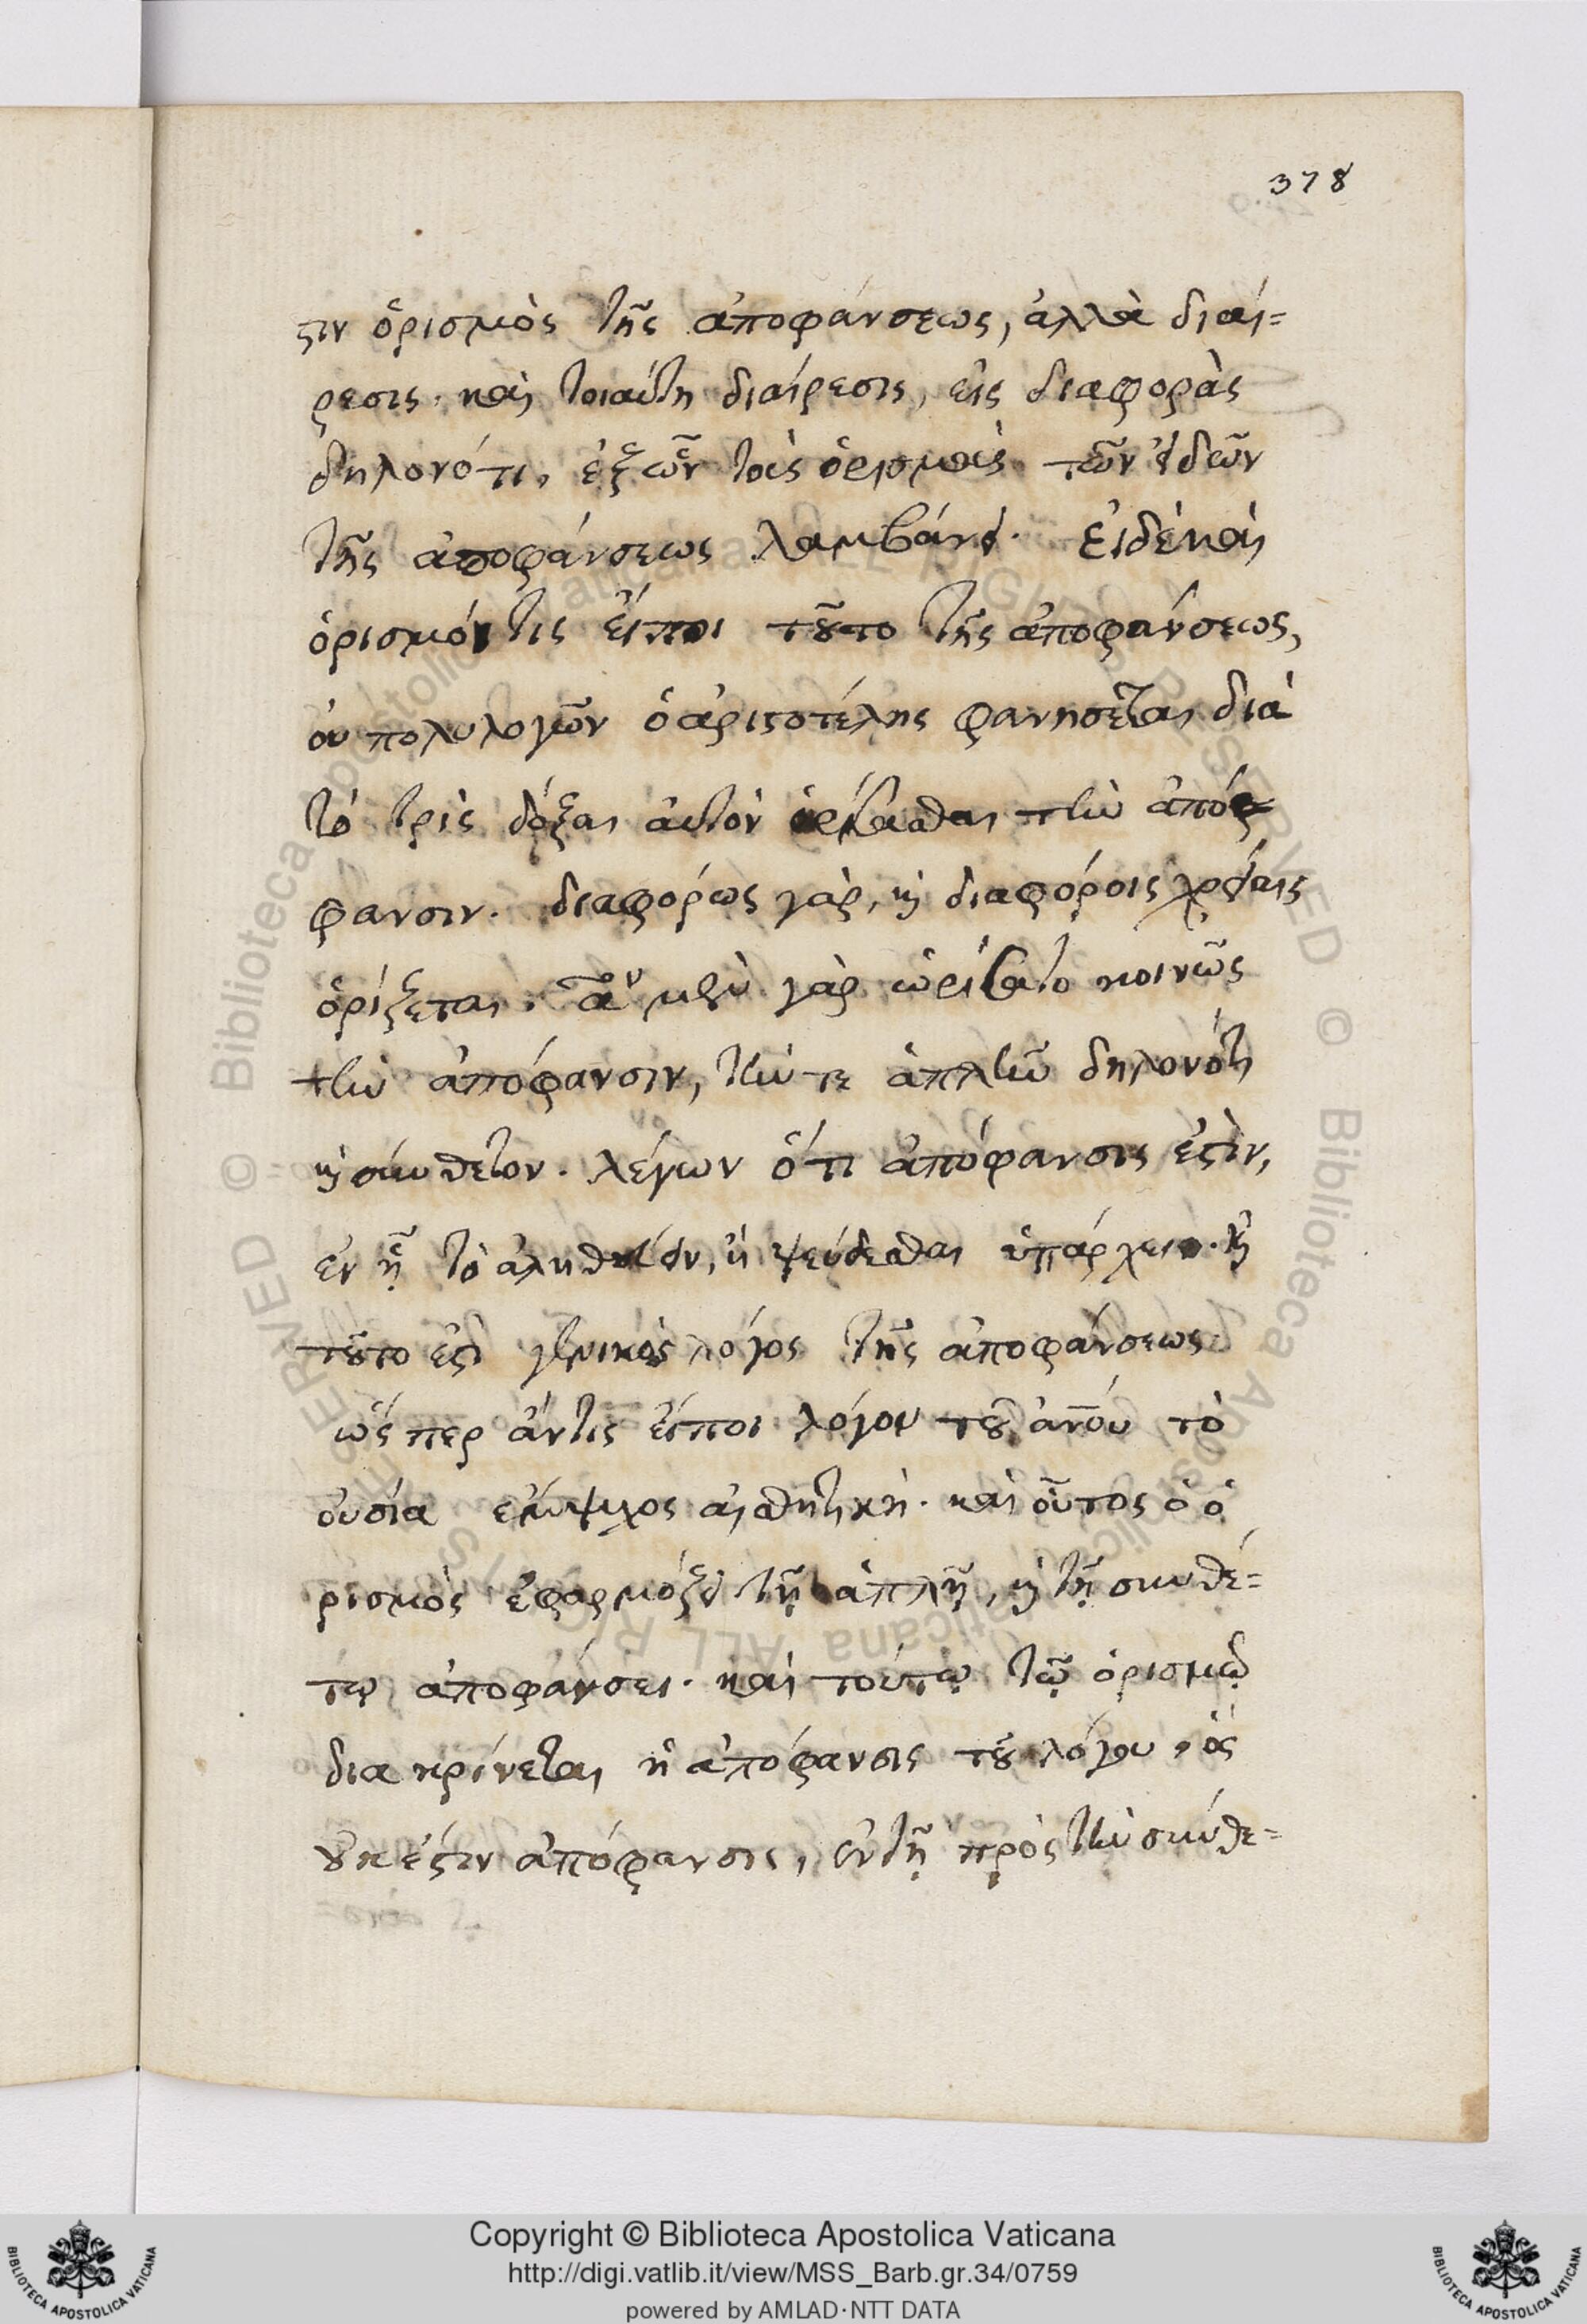 378
στιν ὁρισμὸς τῆς ἀποφάνσεως, ἀλλὰ διαί=
ρεσις. καὶ τοιαύτη διαίρεσις, εἰς διαφορὰς
δηλονότι, ἐξ ὧν τοὺς ὁρισμοὺς τῶν εἰδῶν
τῆς ἀποφάνσεως λαμβάνει. εἰ δὲ καὶ
ὁρισμόν τις εἴποι τοῦτο τῆς ἀποφάνσεως,
οὐ πολυλογῶν ὁ ἀριστοτέλης φανήσεται διὰ
τὸ τρὶς δόξαι αὐτὸν ὁρίσασθαι τὴν ἀπό
φανσιν. διαφόρως γὰρ, καὶ διαφόροις χρείαις
ὁρίζεται. αον μὲν γὰρ ὡρίσατο κοινῶς
τὴν ἀπόφανσιν, τήν τε ἁπλῆν δηλονότι
καὶ σύνθετον. λέγων ὅτι ἀπόφανσις ἐστὶν,
ἐν ᾗ τὸ ἀληθεύειν, ἢ ψεύδεσθαι ὑπάρχει. καὶ
τοῦτο ἐστὶ γενικὸς λόγος τῆς ἀποφάνσεως
ὥς περ ἄν τις εἴποι λόγον τοῦ ἀνου τὸ
οὐσία ἔμψυχος αἰσθητική. καὶ οὗτος ὁ ὁ
ρισμὸς ἐφαρμόζει τῇ ἁπλῇ, καὶ τῇ συνθέ=
τῳ ἀποφάνσει. καὶ τούτῳ τῷ ὁρισμῷ
διακρίνεται ἡ ἀπόφανσις τοῦ λόγου, ὃς
οὐκ ἔστιν ἀπόφανσις, ἐν τῇ πρὸς τὴν σύνθε=
Copyright © Biblioteca Apostolica Vaticana
http://digi.vatlib.it/view/MSS_Barb.gr.34/0759
powered by AMLAD·NTT DATA